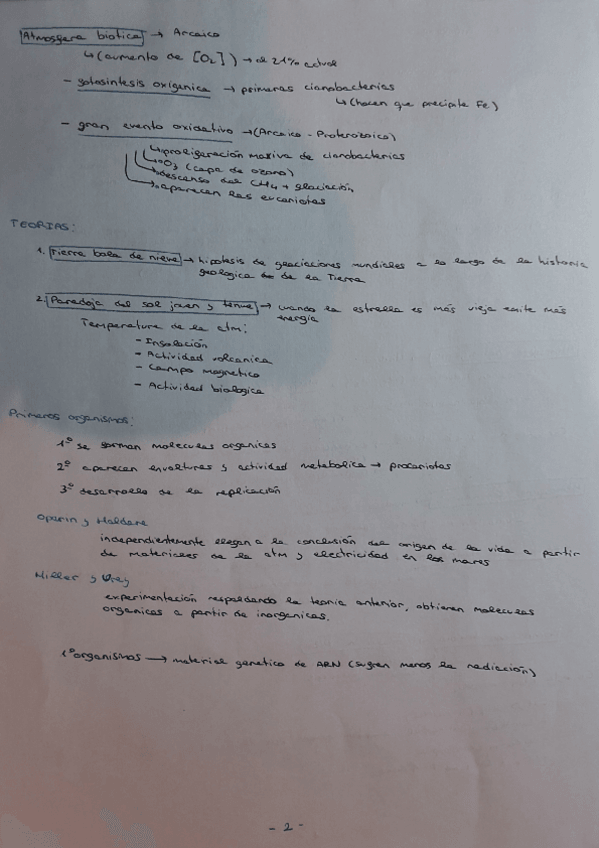 Atmosfera biotica → Arcaico
↳ (aumento de [O₂]) → al 21% actual
- fotosintesis oxigenica → primeras cianobacterias
↳ (hacen que precipite Fe)
- gran evento oxidativo → (Arcaico - Proterozoico)
↳ proliferación masiva de cianobacterias
↳ O₃ (capa de ozono)
→ descenso del CH₄ + glaciación
→ aparecen las eucariotas
TEORIAS:
1. Tierra bola de nieve → hipotesis de glaciaciones mundiales a lo largo de la historia
geologica de la Tierra
2. Paradoja del sol joven y tenue → cuando la estrella es más vieja emite más
energia
Temperatura de la atm:
- Insolación
- Actividad volcanica
- Campo magnetico
- Actividad biologica
Primeros organismos:
1º se forman moleculas organicas
2º aparecen envolturas y actividad metabolica → procariotas
3º desarrollo de la replicación
Oparin y Haldane
independientemente llegan a la conclusión del origen de la vida a partir
de materiales de la atm y electricidad en los mares
Miller y Urey
experimentación respaldando la teoria anterior, obtienen moleculas
organicas a partir de inorganicas.
1º organismos → material genetico de ARN (sufren menos la radiación)
- 2 -